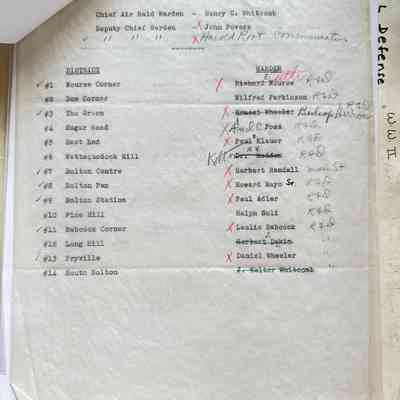 Chief Air Raid Warden - Henry C. Whitcomb
Deputy Chief Warden - X John Powers
" " " X Harold Root Communications
DISTRICT WARDEN
✓ #1 Nourse Corner X Richard Nourse R2D
#2 Bow Corner Wilfred Parkinson R2D
✓ #3 The Green X Ernest Wheeler R2D
#4 Sugar Road X Foss R2D
✓ #5 East End X Paul Klauer R2D
#6 Wattaquadock Hill Dr. R2D
✓ #7 Bolton Centre X Herbert Randall main st
✓ #8 Bolton Pan X Howard Mayo Sr. R2D
✓ #9 Bolton Station X Paul Adler R2D
#10 Pine Hill Ralph Goli R2D
✓ #11 Babcock Corner X Leslie Babcock R2D
#12 Long Hill Herbert Dakin "
✓ #13 Fryville X Daniel Wheeler "
#14 South Bolton J. Walter Whitcomb "
L Defense W.W. II